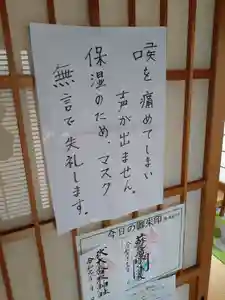 喉を痛めてしまい
声が出ません。
保湿のため、マスク
無言で失礼します。
今日の御朱印